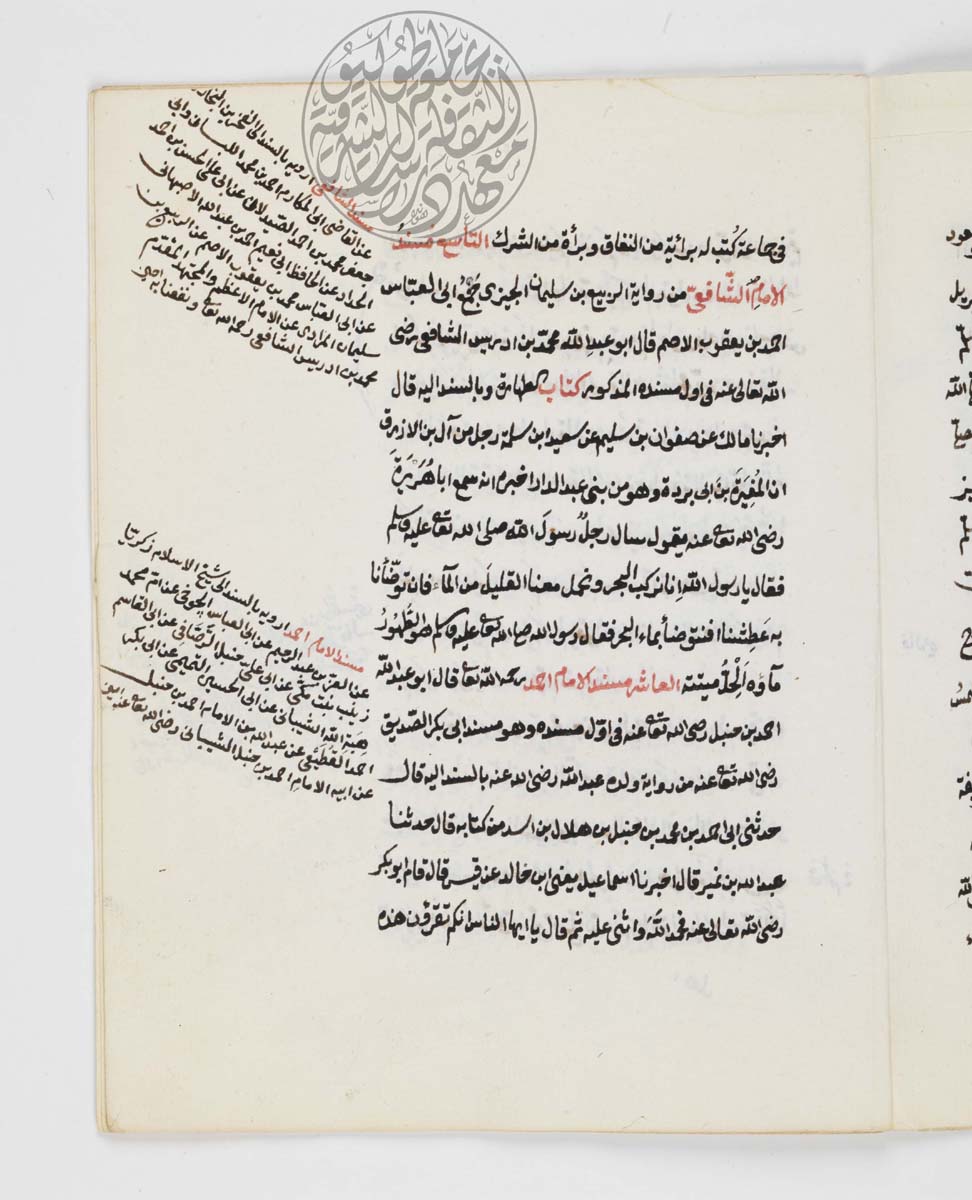 في جماعة كُتب له برائية من النفاق وبرأة من الشرك التاسع مُسندُ
الامام الشّافعيّ من رواية الربيع بن سليمان الجيزى جُمع ابى العبّاس
احمد بن يعقوب الاصم قال ابو عبد الله محمّد بن ادريس الشافعى رضى
الله تعالى عنه فى اول مسنده المذكور كتاب الطهارة وبالسند اليه قال
اخبرنا مالك عن صفوان بن سليم عن سعيد ابن سلمة رجل من آل بن الازرق
ان المُغيَرَةَ بنَ ابى بردة وهو من بنى عبد الدار اخبره انه سمع ابا هُرَيْرَةَ
رضى الله تعا عنه يقول سال رجلٌ رسولَ الله صلى الله تعا عليه وسلم
فقال يا رسول الله اِنا نركب البحر ونحمل معنا القليلَ من المآء فان توضّأنا
به عَطِشنا افنتوضأ بماء البحر فقال رسول الله صلى الله تعا عليه وسلم هو الطَّهورُ
مآؤه اَلْحِلُّ ميتته العاشر مسند الامام احمد رحمه الله تعا قال ابو عبد الله
احمد بن حنبل رضى الله تعا عنه فى اوّل مسنده وهو مسند ابى بكر الصّديق
رضى الله تعا عنه من رواية ولده عبد الله رضى الله عنه بالسند اليه قال
حدثنى ابى احمد بن محمد بن حنبل بن هلال بن اسد من كتابه قال حدثنا
عبد الله بن نمير قال اخبرنا اسماعيل يعنى ابن خالد عن قيس قال قام ابو بكر
رضى الله تعالى عنه فحمد اللهَ واثنى عليه ثم قال يا ايها الناس انكم تقرؤن هذه
مسند الشافعى ارويه بالسند الى الفخر بن البخارى
عن القاضى ابى المكارم احمد بن محمد اللبان وابى
جعفر محمد بن احمد الصيدلانى عن ابى على الحسن بن احمد
الحداد عن الحافظ ابى نعيم احمد بن عبد الله الاصبهانى
عن ابى العباس محمد بن يعقوب الاصم عن الربيع بن
سليمان المرادى عن الامام الاعظم والمجتهد المقدم
محمد بن ادريس الشافعى رحمه الله تعا ونفعنا به
مسند الامام احمد ارويه بالسند الى شيخ الاسلام زكريا
عن العز بن عبد الرحيم عن ابى العباس الجوخى عن ام محمد
زينب بنت مكى عن ابى على حنبل الرصافى عن ابى القاسم
هبة الله الشيبانى عن ابى الحسين التميمى عن ابى بكر
احمد القطيعى عن عبد الله بن الامام احمد بن حنبل
عن ابيه الامام احمد بن حنبل الشيبانى رضى الله تعا عنه
جامعة طوكيو
معهد دراسات الثقافة الشرقية